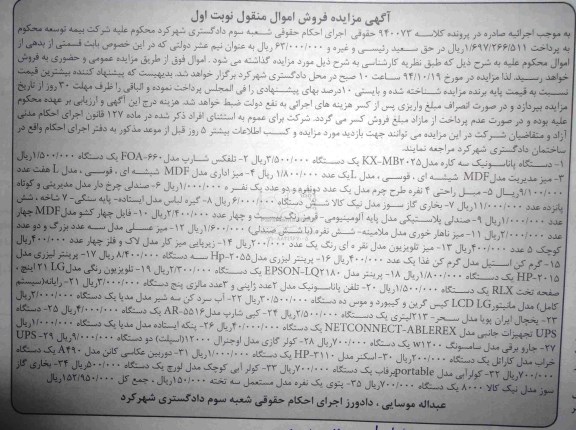 آگهی مزایده فروش اموال منقول نوبت اول
به موجب اجرائیه صادره در پرونده کلاسه ۹۴۰۰۷۳ حقوقی اجرای احکام حقوقی شعبه سوم دادگستری شهرکرد محکوم علیه شرکت بیمه توسعه محکوم
به پرداخت ۱/۶۹۷/۳۶۶/۵۱۱ریال در حق سعید رئیسی و غیره و ۶۳/۰۰۰/۰۰۰ ریال به عنوان نیم عشر دولتی که در این خصوص بابت قسمتی از بدهی از
اموال محکوم علیه به شرح ذیل که طبق نظریه کارشناسی به شرح ذیل مورد مزایده گذاشته می شود . اموال فوق از طریق مزایده عمومی و حضوری به فروش
خواهد رسید. لذا مزایده در مورخ ۹۴/۱۰/۱۹ ساعت ۱۰ صبح در محل دادگستری شهرکرد برگزار خواهد شد. بدیهیست که پیشنهاد کننده بیشترین قیمت
نسبت به قیمت پایه برنده مزایده شناخته شده و بایستی ۱۰درصد بهای پیشنهادی را فی المجلس پرداخت نموده و الباقی را ظرف مهلت ۳۰ روز از تاریخ
مزایده بپردازد و در صورت انصراف مبلغ واریزی پس از کسر هزینه های اجرائی به نفع دولت ضبط خواهد شد. هزینه درج این آگهی و ارزیابی بر عهده محکوم
علیه بوده و در صورت عدم پرداخت از مازاد مبلغ فروش کسر می گردد. شرکت برای عموم به استثنای افراد ذکر شده در ماده ۱۲۷ قانون اجرای احکام مدنی
آزاد و متقاضیان شرکت در این مزایده می توانند جهت بازدید مورد مزایده و کسب اطلاعات بیشتر ۵ روز قبل از موعد مذکور به دفتر اجرای احکام واقع در
ساختمان دادگستری شهرکرد مراجعه نمایند.
۱- دستگاه پاناسونیک سه کاره مدلKX-MB۲۰۲۵ یک دستگاه ۳/۵۰۰/۰۰۰ریال ۲- تلفکس شارپ مدل۶۶۰-FOA یک دستگاه ۱/۵۰۰/۰۰۰ریال
۳- میز مدیریت مدلMDF شیشه ای ، قوسی ، مدل Lیک عدد ۱/۸۰۰/۰۰۰ ریال ۴- میز اداری مدل MDF شیشه ای ، قوسی ، مدل L هفت عدد
۹/۱۰۰/۰۰۰ریال ۵- مبل راحتی ۴ نفره طرح چرم مدل یک عدد دونفره و دو عدد یک نفره ۱/۰۰۰/۰۰۰ریال ۶- صندلی چرخ دار مدل مدیریتی و کوتاه
پانزده عدد ۱۱/۰۰۰/۰۰۰ریال ۷- بخاری گاز سوز مدل نیک کالا شش دستگاه ۶/۰۰۰/۰۰۰ریال ۸- گیره لباس مدل ایستاده- پایه سنگی- ۷ شاخه ، شش
عدد ۱/۰۰۰/۰۰۰ریال ۹- صندلی پلاستیکی مدل پایه آلومینیومی- قرمز رنگ بیست و چهار عدد ۲/۴۰۰/۰۰۰ریال ۱۰- فایل چهار کشو مدلMDF چهار
عدد ۲/۰۰۰/۰۰۰ریال ۱۱- میز ناهار خوری مدل ملامینه- شش نفره (با شش صندلی) ۱/۶۰۰/۰۰۰ریال ۱۲- میز عسلی مدل سه عدد بزرگ و دو عدد
کوچک ۵ عدد ۴۰۰/۰۰۰ریال ۱۳- میز تلویزیون مدل نقره ای رنگ یک عدد ۲۰۰/۰۰۰ریال ۱۴- زیرپایی میز کار مدل لاک و فلز چهار عدد ۴۰۰/۰۰۰ریال
۱۵- گرم کن استیل مدل گرم کن غذا یک عدد ۴۰۰/۰۰۰ریال ۱۶- پرینتر لیزری مدلHp-۲۰۵۵ سه دستگاه ۸/۴۰۰/۰۰۰ ریال ۱۷- پرینتر لیزری مدل
HP-۲۰۱۵ یک دستگاه ۱/۸۰۰/۰۰۰ریال ۱۸- پرینتر مدل EPSON-LQ۲۱۸۰ یک دستگاه ۲/۳۰۰/۰۰۰ریال ۱۹- تلویزیون رنگی مدل۲۱ LG اینچ ،
صفحه تخت RLX یک دستگاه ۱/۵۰۰/۰۰۰ریال ۲۰- تلفن پاناسونیک مدل ۲عدد ژاپنی و ۳عدد مالزی پنج دستگاه ۳/۰۰۰/۰۰۰ریال ۲۱- رایانه(سیستم
کامل) مدل مانیتورLCD LG کیس گرین و کیبورد و موس ده دستگاه ۳۰/۵۰۰/۰۰۰ریال ۲۲- آب سرد کن سه شیر مدل مدیا یک دستگاه ۲/۰۰۰/۰۰۰ریال
۲۳- یخچال ایران پویا مدل سحر- ۲۱۳لیتری یک دستگاه ۲/۵۰۰/۰۰۰ریال ۲۴- کپی شارپ مدلAR-۵۵۱۶ یک دستگاه ۴/۰۰۰/۰۰۰ریال ۲۵- دستگاه
UPS تجهیزات جانبی مدل NETCONNECT-ABLEREX یک دستگاه ۴۰/۰۰۰/۰۰۰ریال ۲۶- پنکه ایستاده مدل مدیا یک دستگاه ۱/۰۰۰/۰۰۰ریال
۲۷- جارو برقی مدل سامسونگ w۱۲۰۰ یک دستگاه ۷۰۰/۰۰۰ریال ۲۸- کولر گازی مدل اوجنرال ۱۲۰۰۰(اسپلت) دو دستگاه ۹/۰۰۰/۰۰۰ریال ۲۹- UPS
خراب مدل کارائل یک دستگاه ۲۰۰/۰۰۰ریال ۳۰- اسکنر مدل HP-۳۱۱۰ یک دستگاه ۱/۰۰۰/۰۰۰ریال ۳۱- دوربین عکاسی کانن مدل A۴۹۰ یک دستگاه
۷۰۰/۰۰۰ریال ۳۲- کولرآبی مدل portableبرفاب یک دستگاه ۷۰۰/۰۰۰ریال ۳۳- کولر آبی کوچک مدل لورچ یک دستگاه ۵۰۰/۰۰۰ریال ۳۴- بخاری گاز
سوز مدل نیک کالا ۸۰۰۰ یک دستگاه ۷۰۰/۰۰۰ریال ۳۵- پتوی یک نفره مدل مستعمل سه تخته ۱۵۰/۰۰۰ریال ، جمع کل ۱۵۲/۹۵۰/۰۰۰ریال
عبداله موسایی ، دادورز اجرای احکام حقوقی شعبه سوم دادگستری شهرکرد